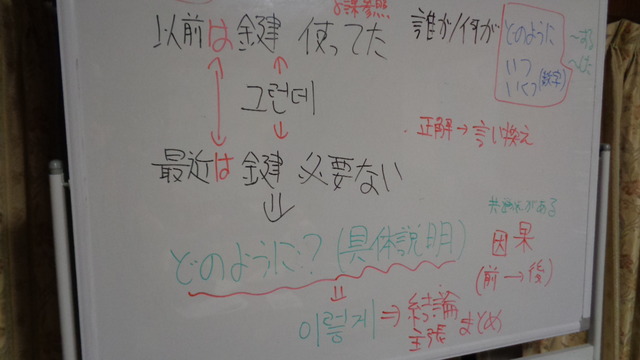 8課参照
以前は鍵使ってた
誰か/何が
どのように
～する
いつ
～した
いくつ(数字)
그런데
正解→言い換え
最近は鍵必要ない
⇓
共통点がある
どのように?(具体説明)
因果
(前→後)
⇓
이렇게⇒結論
主張
まとめ